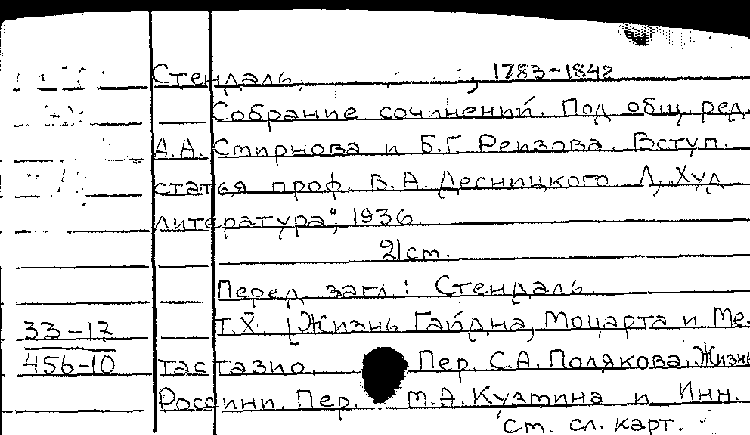 Стендаль, 1783-1842
Собрание сочинений. Под общ. ред.
А.А. Смирнова и Б.Г. Реизова. Вступ.
статья проф. В.А. Десницкого Л, Худ
литература, 1936.
21см.
Перед загл.: Стендаль
33-12 Т.X. [Жизнь Гайдна, Моцарта и Ме-
456-10 тастазио. Пер. С.А. Полякова. Жизнь
Россини. Пер. М.А. Кузмина и Инн.
см. сл. карт.